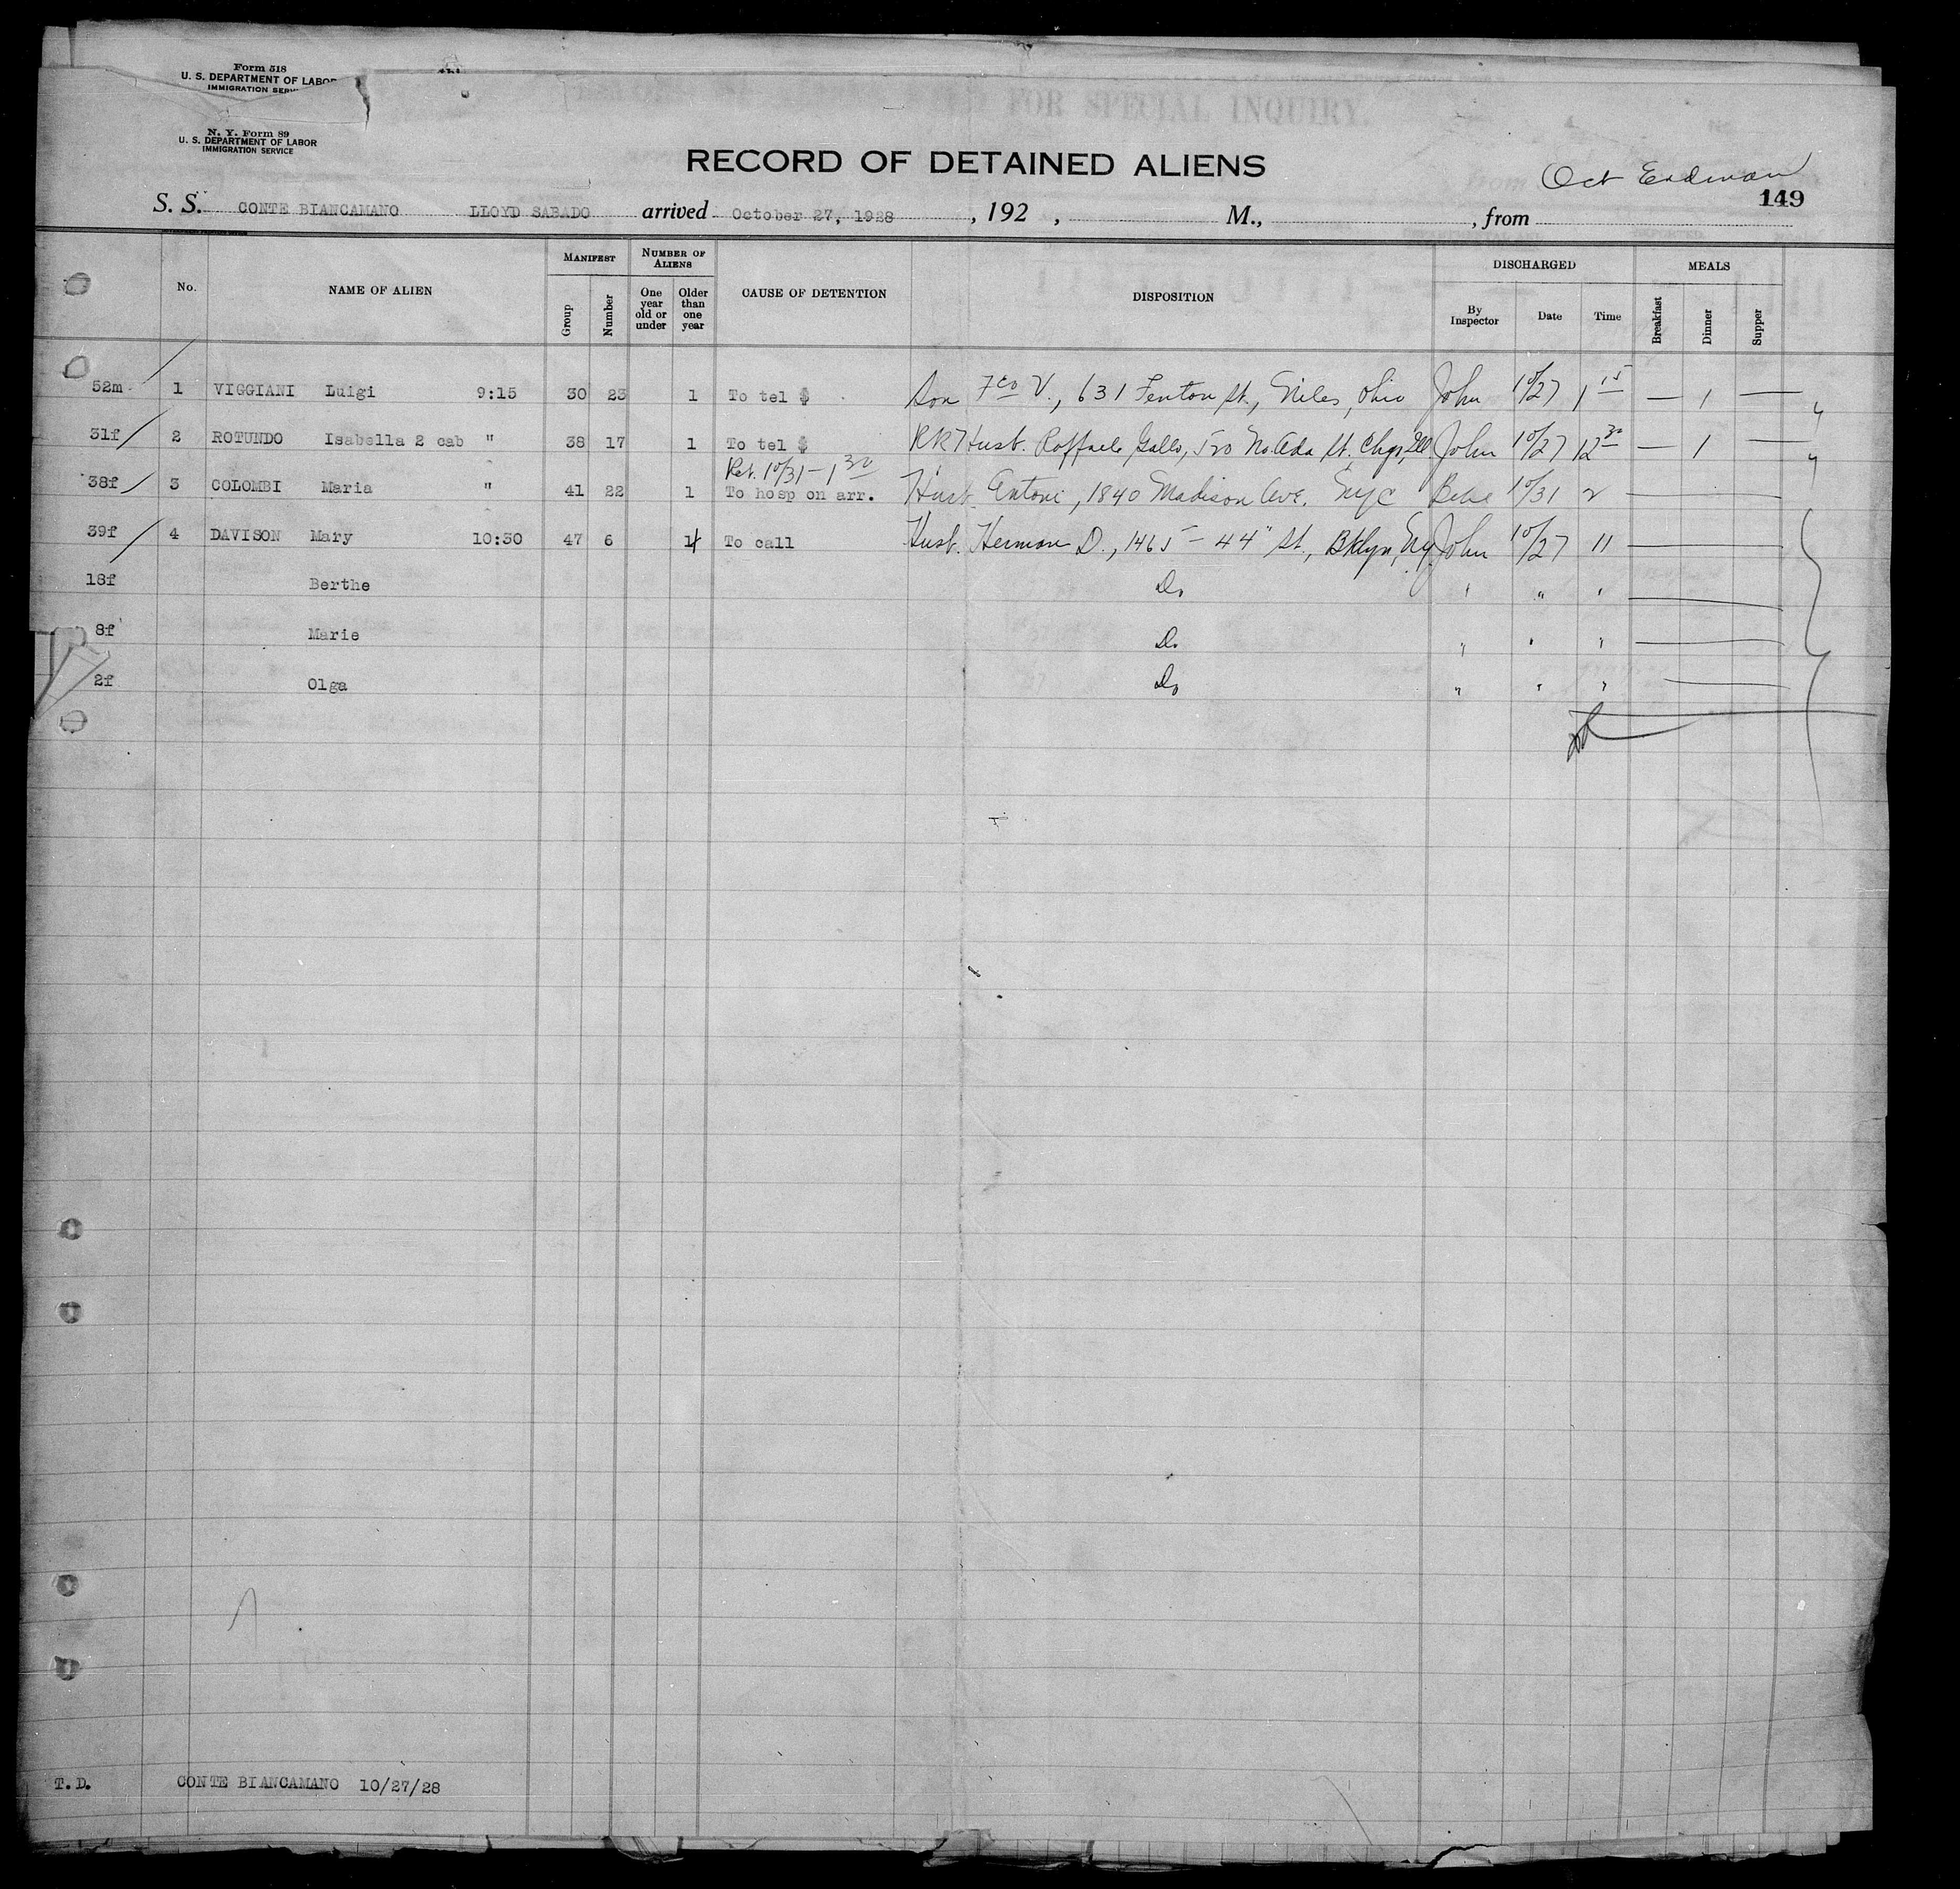 Form 518
U. S. DEPARTMENT OF LABOR
IMMIGRATION SERV
FOR SPECIAL INQUIRY.
N. Y. Form 89
U. S. DEPARTMENT OF LABOR
IMMIGRATION SERVICE
RECORD OF DETAINED ALIENS
149
S. S. CONTE BIANCAMANO LLOYD SABADO arrived October 27, 1928, 192 , M., , from
No. NAME OF ALIEN MANIFEST Group Number NUMBER OF ALIENS One year old or under Older than one year CAUSE OF DETENTION DISPOSITION DISCHARGED By Inspector Date Time MEALS Breakfast Dinner Supper
52m 1 VIGGIANI Luigi 9:15 30 23 1 To tel $ Son Fco V., 631 Fenton St., Niles, Ohio John 10/27 1 15 — 1 —
31f 2 ROTUNDO Isabella 2 cab " 38 17 1 To tel $ RR Hust. Raffaele Gallo, 520 No. Ada St. Chgo, Ill. John 10/27 12 30 — 1 —
Ret. 10/31 - 1 30
38f 3 COLOMBI Maria " 41 22 1 To hosp on arr. Husb. Antoni, 1840 Madison Ave. NYC 10/31 2
39f 4 DAVISON Mary 10:30 47 6 4 To call Husb. Herman D., 1465 - 44" St., Bklyn, NY John 10/27 11
18f Berthe Do " " "
8f Marie Do " " "
2f Olga Do " " "
T.D. CONTE BIANCAMANO 10/27/28